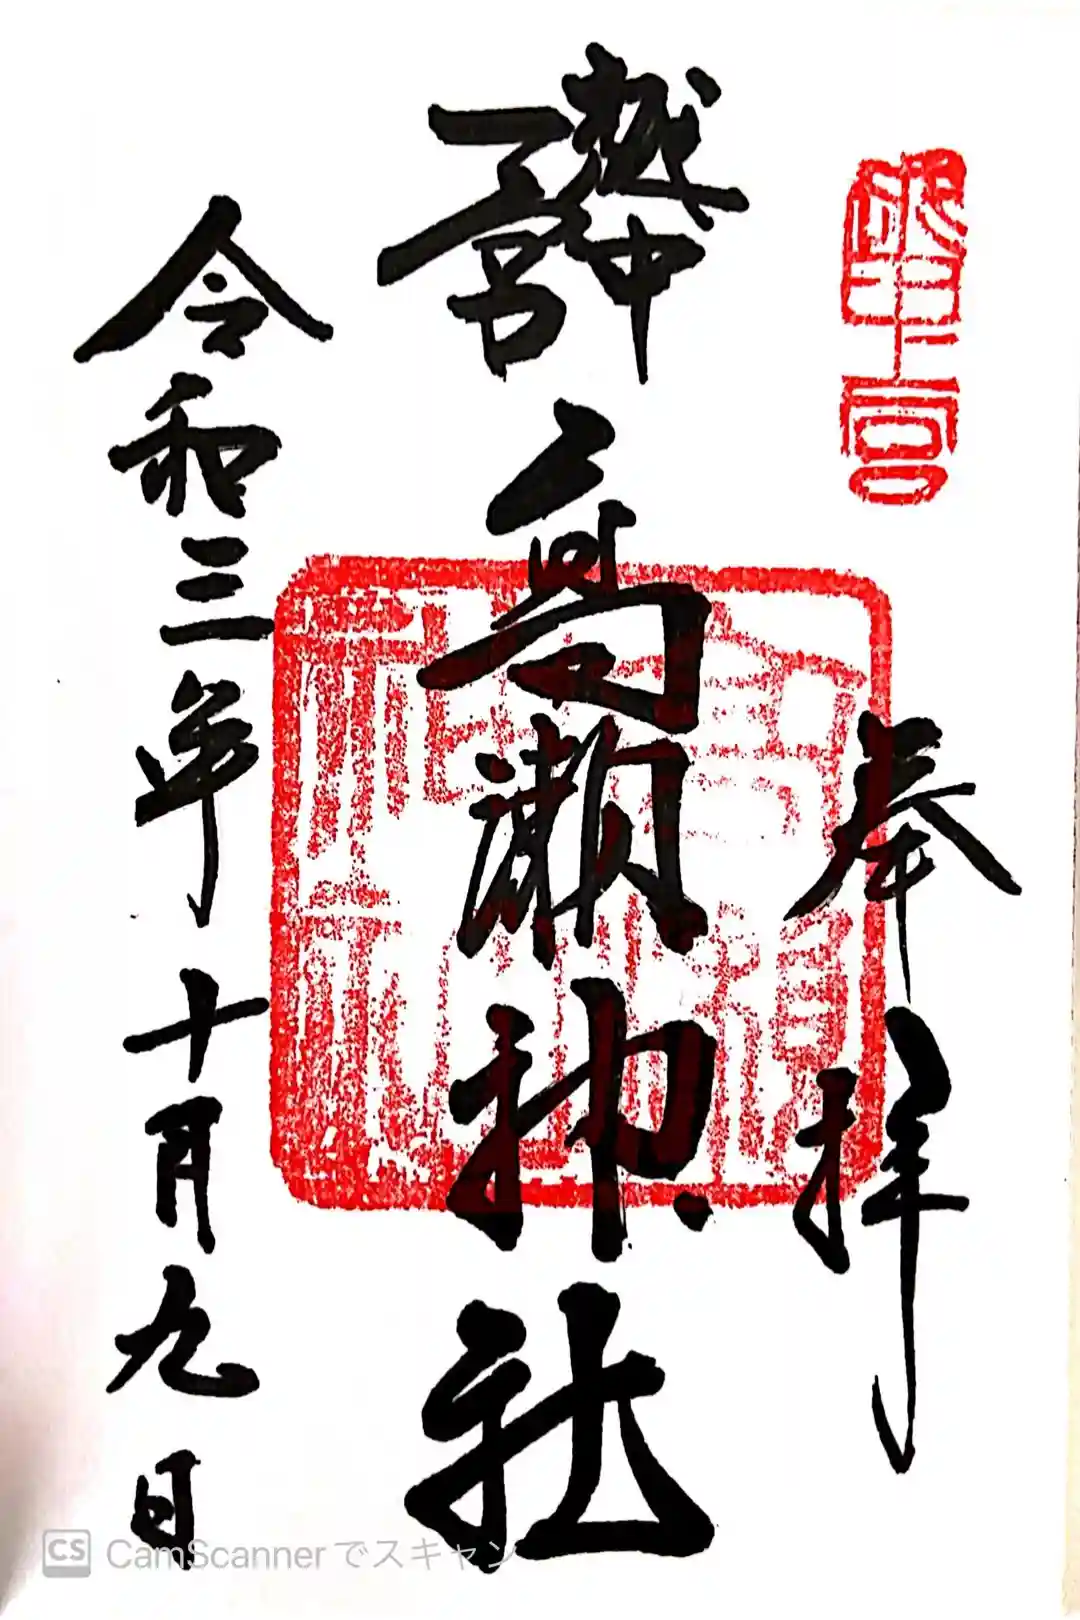 奉拝
越中
一宮
高瀬神社
令和三年十月九日
CS CamScannerでスキャン